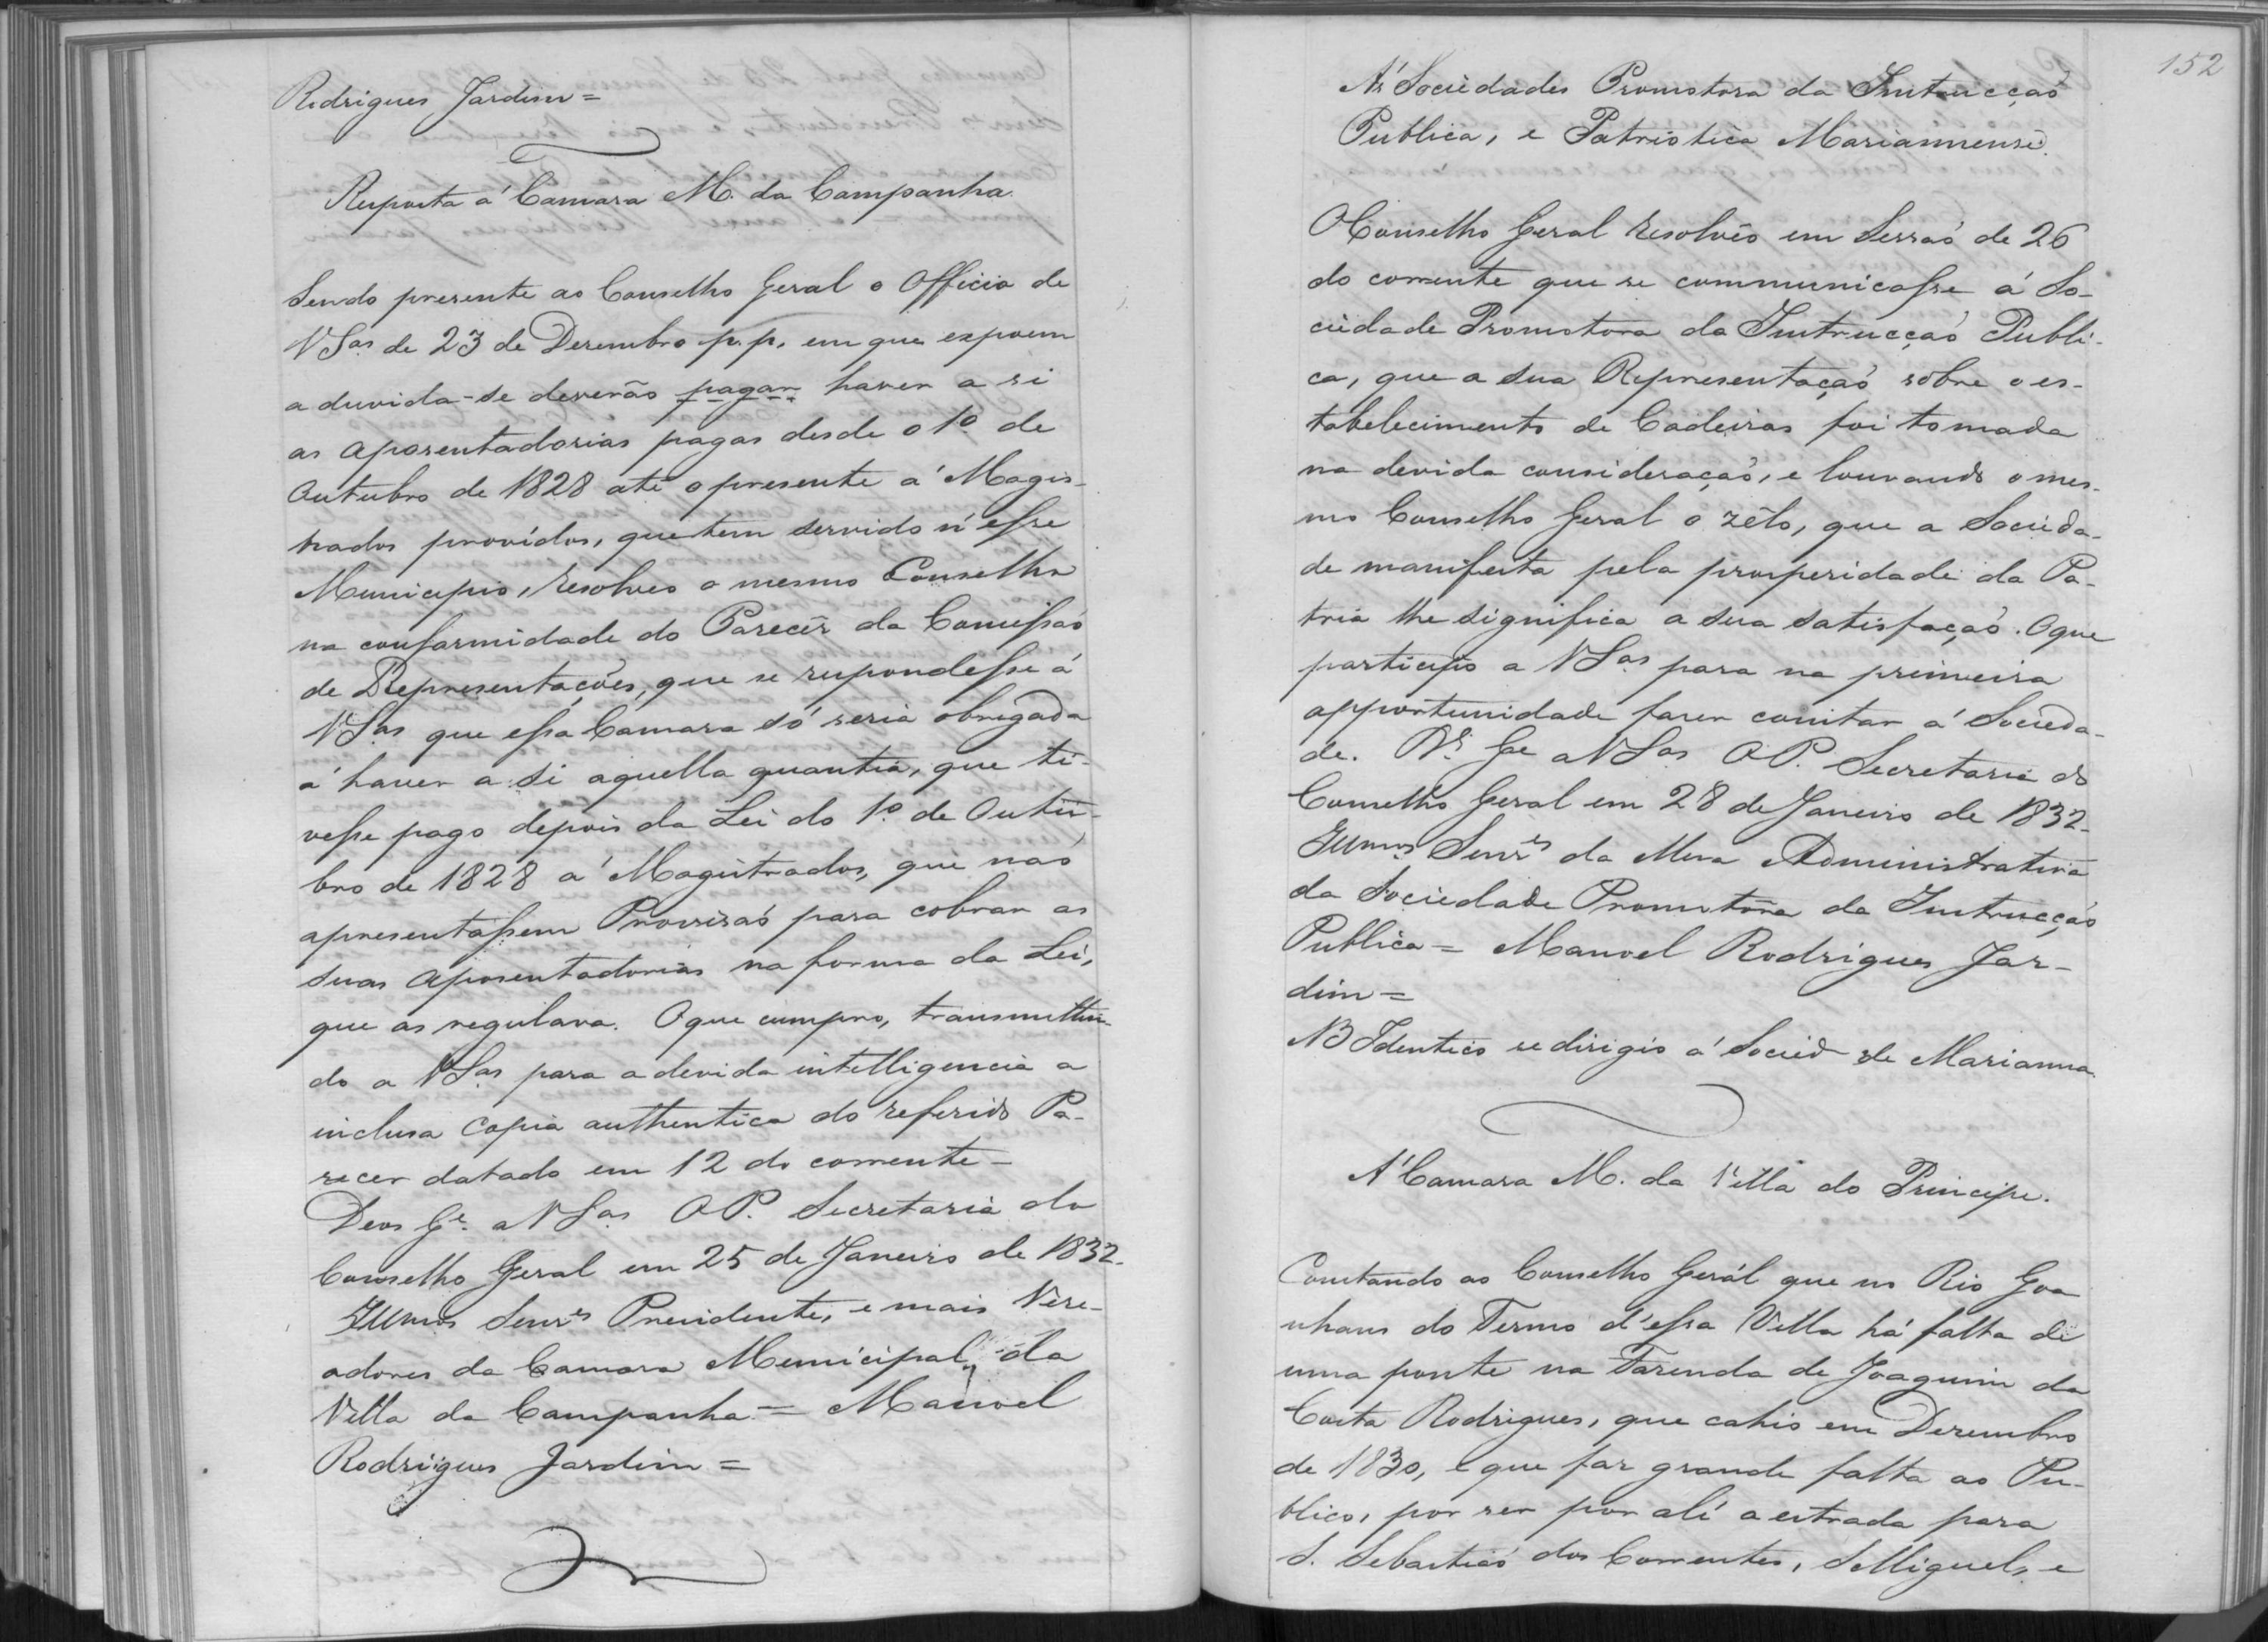 Rodrigues Jardim =
Resposta á Camara M. da Campanha.
Sendo presente ao Conselho Geral o Officio de
VSas de 23 de Dezembro p.p. em que expoem
a duvida-se deverão pagar haver a si
as aposentadorias pagas desde o 1º de
Outubro de 1828 até o presente á Magis-
trados providos, que tem servido n'esse
Municipio, resolveo o mesmo Conselho
na conformidade do Parecêr da Comissaõ
de Representações, que se respondesse á
VSas que essa Camara só seria obrigada
á haver a si aquella quantia, que ti-
vesse pago depois da Lei do 1º de Outu-
bro de 1828 á Magistrados, que naõ
apresentassem Provisaõ para cobrar as
suas aposentadorias na forma da Lei,
que as regulava. O que cumpro, transmitten-
do a VSas para a devida intelligencia a
inclusa copia authentica do referido Pa-
recer datado em 12 do corrente -
Deos Ge. a VSas OP. Secretaria do
Conselho Geral em 25 de Janeiro de 1832.
Illmos Senres Presidente, e mais Vere-
adores da Camara Municipal da
Villa da Campanha = Manoel
Rodrigues Jardim =
152
Ás Sociedades Promotora da Instrucçaõ
Publica, e Patriotica Mariannense.
O Conselho Geral resolvêo em Sessaõ de 26
do corrente que se communicasse á So-
ciedade Promotora da Instrucçaõ Publi-
ca, que a sua Representaçaõ sobre o es-
tabelecimento de Cadeiras foi tomada
na devida consideraçaõ, e louvando o mes-
mo Conselho Geral o zêlo, que a Socieda-
de manifesta pela prosperidade da Pa-
tria lhe significa a sua satisfaçaõ. O que
participo a VSas para na primeira
opportunidade fazer constar á Socieda-
de. Ds. Ge a VSas OP. Secretaria do
Conselho Geral em 28 de Janeiro de 1832-
Illmos Senres da Mesa Administrativa
da Sociedade Promotora da Instrucçaõ
Publica = Manoel Rodrigues Jar-
dim =
NB Identico se dirigio á Socied de Marianna.
Á Camara M. da Villa do Principe.
Constando ao Conselho Gerál que no Rio Goa
nhans do Termo d'essa Villa há falta de
uma ponte na Fazenda de Joaquim da
Costa Rodrigues, que cahio em Dezembro
de 1830, e que faz grande falta ao Pu-
blico, por ser por ali a estrada para
S. Sebastiaõ dos Correntes, S Miguel, e